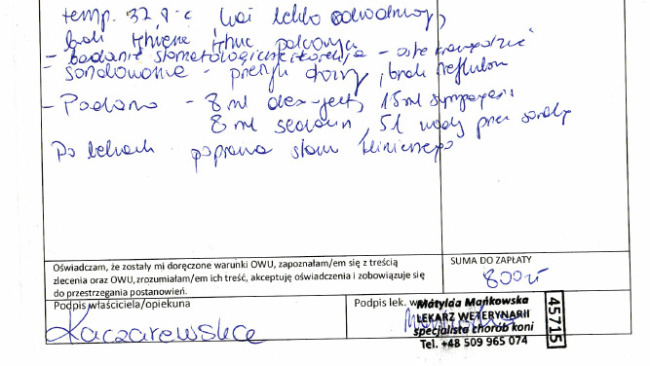 temp. 37,8°C koń lekko odwodniony,
brak
- badanie stomatologiczne i korekta - ostre krawędzie
- sondowanie - przełyk drożny, brak refluksu
- Podano - 8 ml dex-ject, 15 ml
8 ml sedacum, 5 l wody przez sondę
Po lekach poprawa stanu klinicznego
Oświadczam, że zostały mi doręczone warunki OWU, zapoznałam/em się z treścią
zlecenia oraz OWU, zrozumiałam/em ich treść, akceptuję oświadczenia i zobowiązuje się
do przestrzegania postanowień.
SUMA DO ZAPŁATY
800 zł
Podpis właściciela/opiekuna
Podpis lek. w
Matylda Mańkowska
LEKARZ WETERYNARII
specjalista chorób koni
Tel. +48 509 965 074
45715